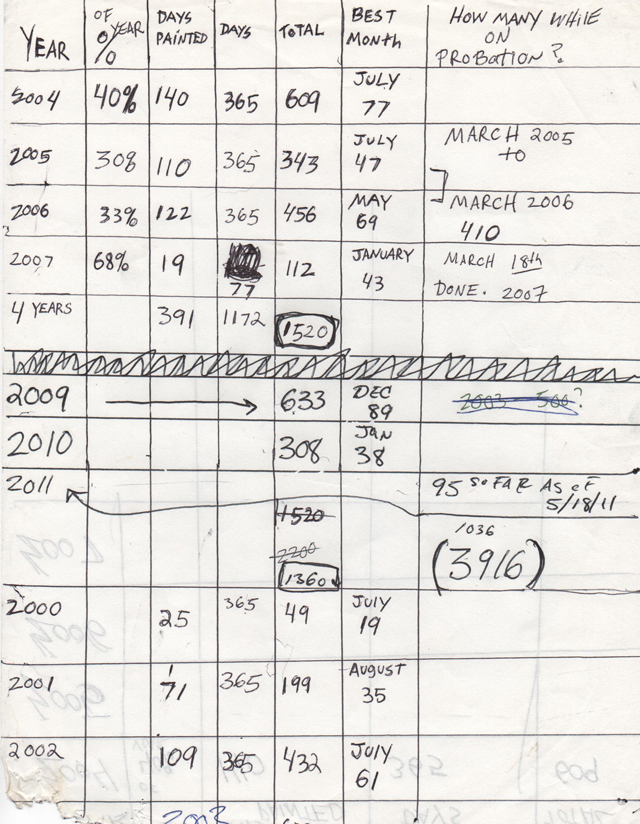 YEAR OF YEAR % DAYS PAINTED DAYS TOTAL BEST MONTH HOW MANY WHILE ON PROBATION?
2004 40% 140 365 609 JULY 77
2005 30% 110 365 343 JULY 47 MARCH 2005 to
2006 33% 122 365 456 MAY 69 MARCH 2006 410
2007 68% 19 77 112 JANUARY 43 MARCH 18th DONE. 2007
4 YEARS 391 1172 1520
2009 633 DEC 89 2003 500?
2010 308 JAN 38
2011 95 SO FAR AS OF 5/18/11
1520
2200
1360
1036
(3916)
2000 25 365 49 JULY 19
2001 71 365 199 AUGUST 35
2002 109 365 432 JULY 61
2003